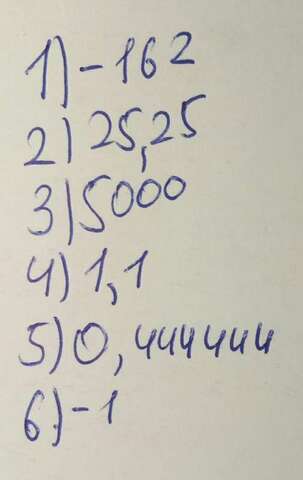 1) -162
2) 25,25
3) 5000
4) 1,1
5) 0,444444
6) -1